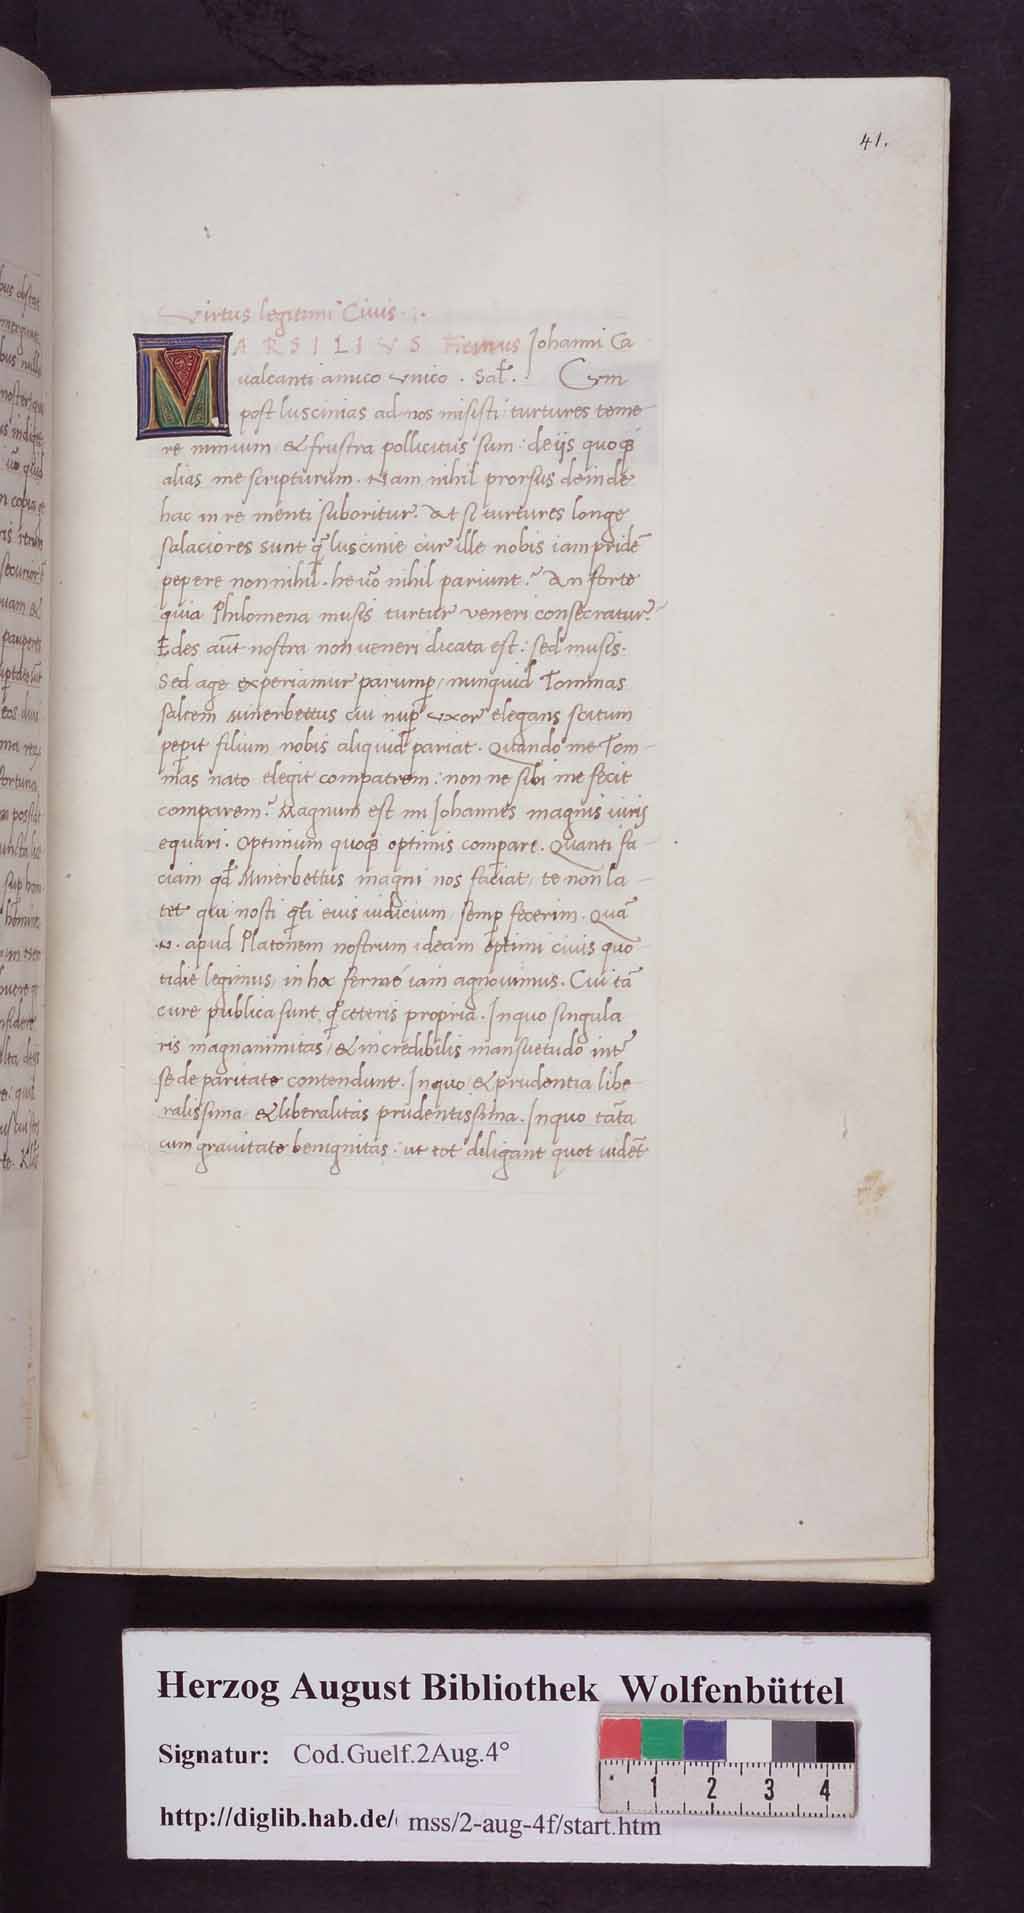 41.
Virtus legitimi Civis.
MARSILIUS Ficinus Johanni Ca
ualcanti amico unico. Sal̄. Cum
post luscinias ad nos misisti turtures teme
re nimium & frustra pollicitus sum: de ijs quoqȝ
alias me scripturum. Nam nihil prorsus deinde
hac in re menti suboritur. At si turtures longe
salaciores sunt q̄ luscinie cur ille nobis iampridē
pepere nonnihil. he uō nihil pariunt? An forte
quia Philomena musis turtur veneri consecratur?
Edes aūt nostra non veneri dicata est: sed musis.
Sed age experiamur parump̱ / nunquid Tommas
saltem Minerbettus cui nup̱ uxor elegans scitum
pep̱it filium nobis aliquid pariat. Quando me Tom
mas nato elegit compatrem: non ne sibi me fecit
comparem? Magnum est mi Johannes magnis uiris
equari. Optimum quoqȝ optimis comparari. Quanti fa
ciam qd̄ Minerbettus magni nos faciat / te non la
tet qui nosti q̄ti eius iudicium semp̱ fecerim. Quā
.n. apud Platonem nostrum ideam optimi ciuis quo
tidie legimus / in hoc ferme iam agnouimus. Cui tā
cure publica sunt q̄ ceteris propria. In quo singula
ris magnanimitas / & incredibilis mansuetudo int̄
se de paritate contendunt. In quo & prudentia libe
ralissima & liberalitas prudentissima. In quo tāta
cum grauitate benignitas: ut tot diligant quot uidēt
Herzog August Bibliothek Wolfenbüttel
Signatur: Cod.Guelf.2Aug.4°
1 2 3 4
http://diglib.hab.de/ mss/2-aug-4f/start.htm